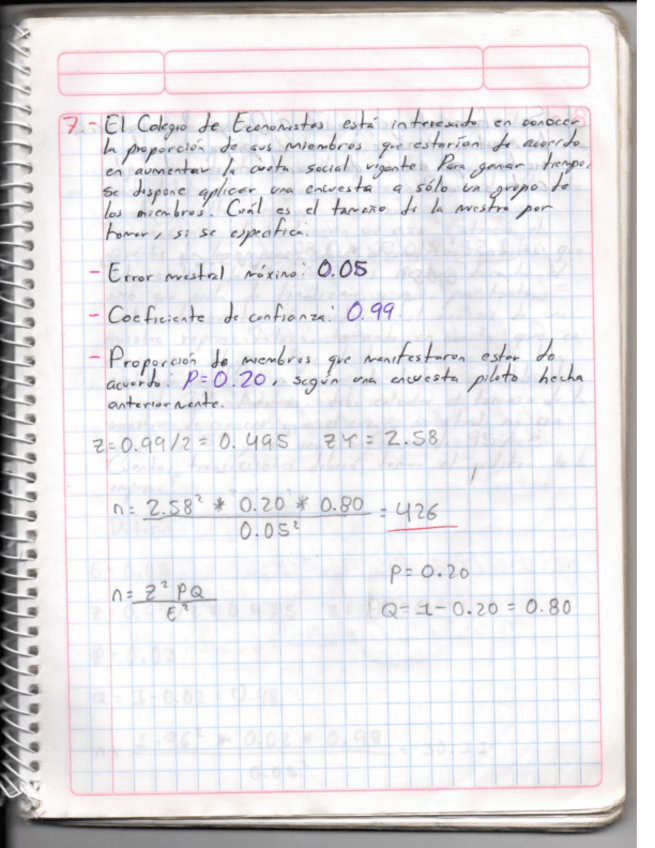 7.- El Colegio de Economistas está interesado en conocer
la proporción de sus miembros que estarían de acuerdo
en aumentar la cuota social vigente. Para ganar tiempo,
se dispone aplicar una encuesta a sólo un grupo de
los miembros. Cuál es el tamaño de la muestra por
tomar, si se especifica:
- Error muestral máximo: 0.05
- Coeficiente de confianza: 0.99
- Proporción de miembros que manifestaron estar de
acuerdo: P=0.20, según una encuesta piloto hecha
anteriormente.
Z=0.99/2=0.495 ZT=2.58
n= 2.58² * 0.20 * 0.80 = 426
0.05²
P=0.20
n= Z² PQ
E²
Q=1-0.20=0.80